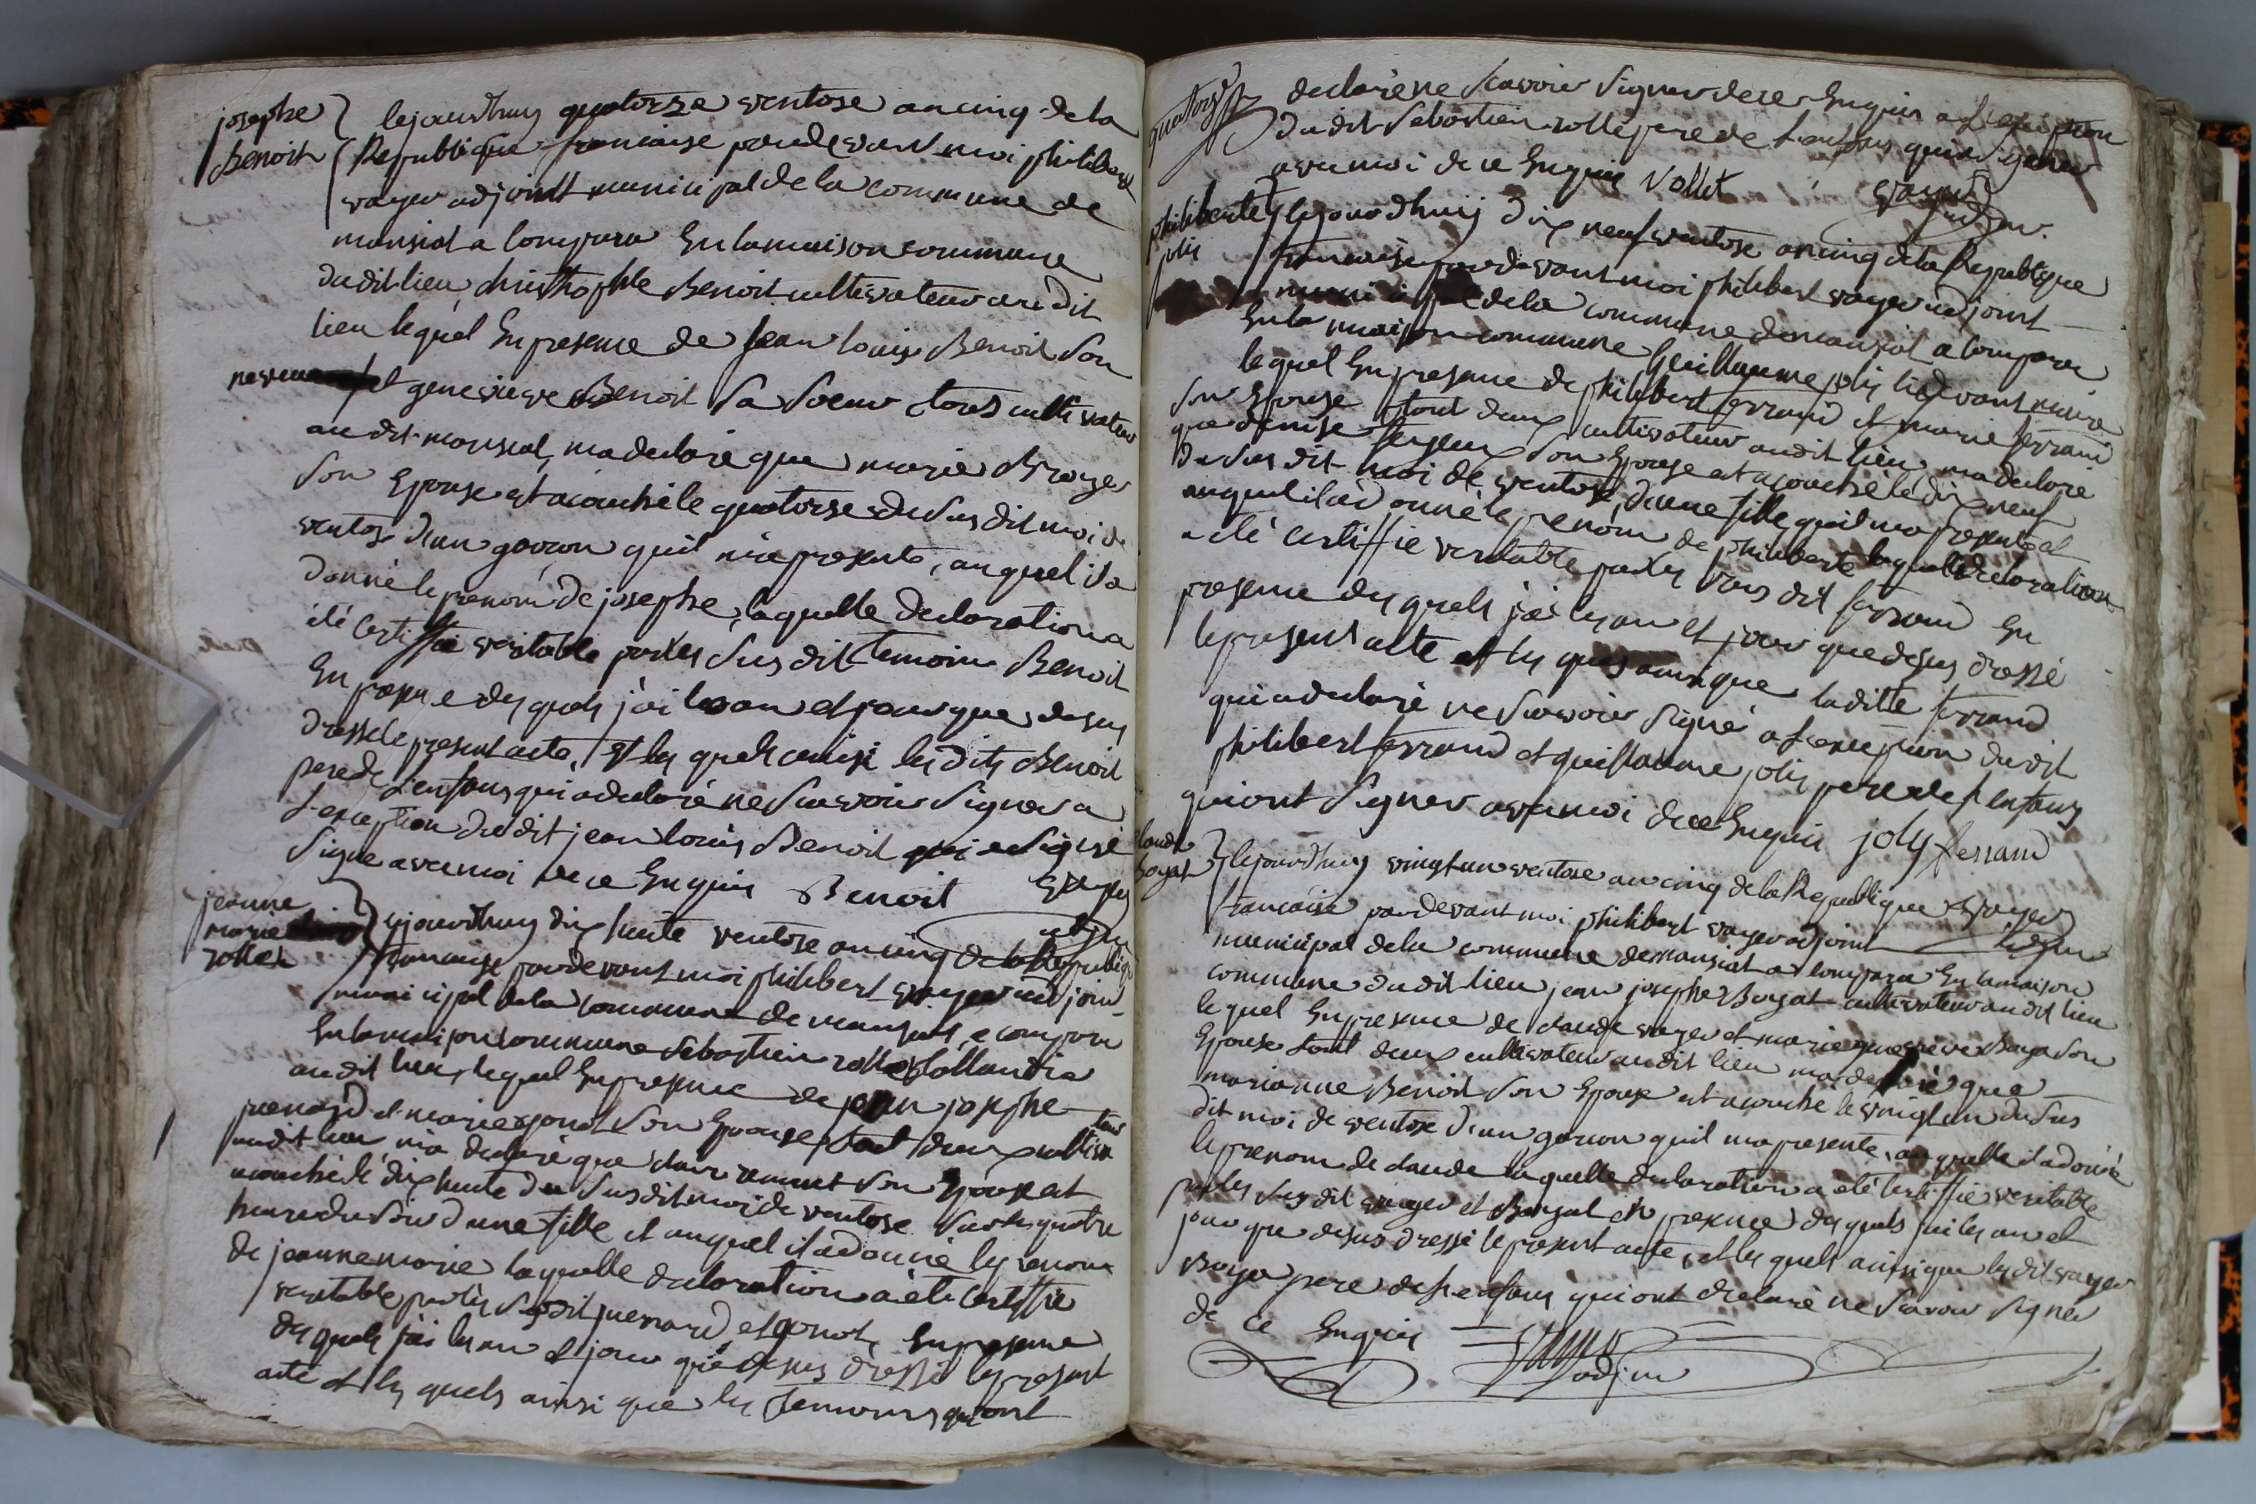 josephe
Benoit
lejourdhuy quatorze ventose an cinq de la
Republique francaise pardevant moi philibert
voyer adjoint municipal de la commune de
mansiat a comparu En lamaison commune
dudit lieu christhophle Benoit cultivateur audit
lieu lequel En presence de jean louis Benoit son
neveu et genevieve Benoit sa soeur tous cultivateur
au dit mansiat, ma declaré que marie
son Epouse est acouchéle quatorse du sus dit moi de
ventose d'un garcon quil m'a presenté, auquel il a
donné le prenom de josephe, laquelle declaration a
été certiffié veritable par les sus dit temoins Benoit
En presence des quels j'ai les an et jour que desus
dressé le present acte, et les quels ainsi les dits Benoit
pere de Lenfans qui a declaré ne scavoir signer a
Lexception du dit jean louis Benoit
signe avec moi de ce Enquis Benoit
jeanne
marie
rollet
lejourdhuy dix huite ventose an cinq de la Republique
francaise pardevant moi philibert voyer adjoin
municipal de la commune de mansiat, a comparu
En lamaison commune sebastien rollet
audit lieu, lequel En presence de jean josephe
et marie gonot son Epouse tout deux cultiva
teur
audit lieu m'a declaré que son Epouse est
acouchéle dix huite du sus dit moi de ventose sur les quatre
heure du soir d'une fille et auquel il a donné les
de jeanne marie laquelle declaration a été certiffié
veritable par les susdit et gonot, En presence
des quels j'ai les an et jour que desus dressé le present
acte et les quels ainsi que les temoins qui ont
declaré ne scavoir signer de ce Enquis a Lexception
du dit sebastien rollet pere de Lenfans qui a signer
avec moi de ce Enquis Vollet
philiberte
joly
lejourdhuij dix neuf ventose an cinq de la Republique
francaise pardevant moi philibert voyer adjoint
municipal de la commune de mansiat a comparu
En la maison commune Guillaume joly
lequel En presence de philibert ferrand et marie ferrand
son Epouse tout deux cultivateur audit lieu ma declaré
que denise son Epouse est acouchéle dix neuf
du sus dit moi de ventose d'une fille quil ma presenté et
auquel il a donné le prenom de philiberte laquelle declaration
a été certiffie veritable par les sous dit ferrand En
presence des quels j'ai les an et jour que desus dressé
le present acte et les quels ainsi que la ditte ferrand
qui a declaré ne scavoir signé a Lexception du dit
philibert ferrand et guillaume joly pere de Lenfans
qui ont signer avec moi de ce Enquis joly ferrand
Boyat
lejourdhuy vingt un ventose an cinq de la Republique
francaise pardevant moi philibert voyer adjoint
municipal de la commune de mansiat a comparu En la maison
commune du dit lieu jean josephe Boyat cultivateur au dit lieu
le quel En presence de claude voyer et marie
Epouse tout deux cultivateur au dit lieu ma declaré que
marianne Benoit son Epouse est acouche le vingt un du sus
dit moi de ventose d'un garcon quil ma presenté, auquelle il a donné
le prenom de claude laquelle declaration a été certiffie veritable
par les sus dit voyer et Boyat en presence des quels jai les an et
jour que desus dressé le present acte, et les quels ainsi que les dit voyer
pere de Lenfans qui ont declaré ne scavoir signer
de ce Enquis
adjoin